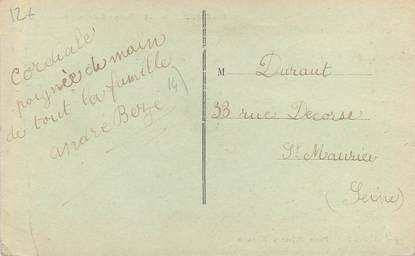 12+
Cordiale
poignée de main
de tout la famille
André Berge
14)
M Durant
33 rue Decorse
St Maurice
(Seine)